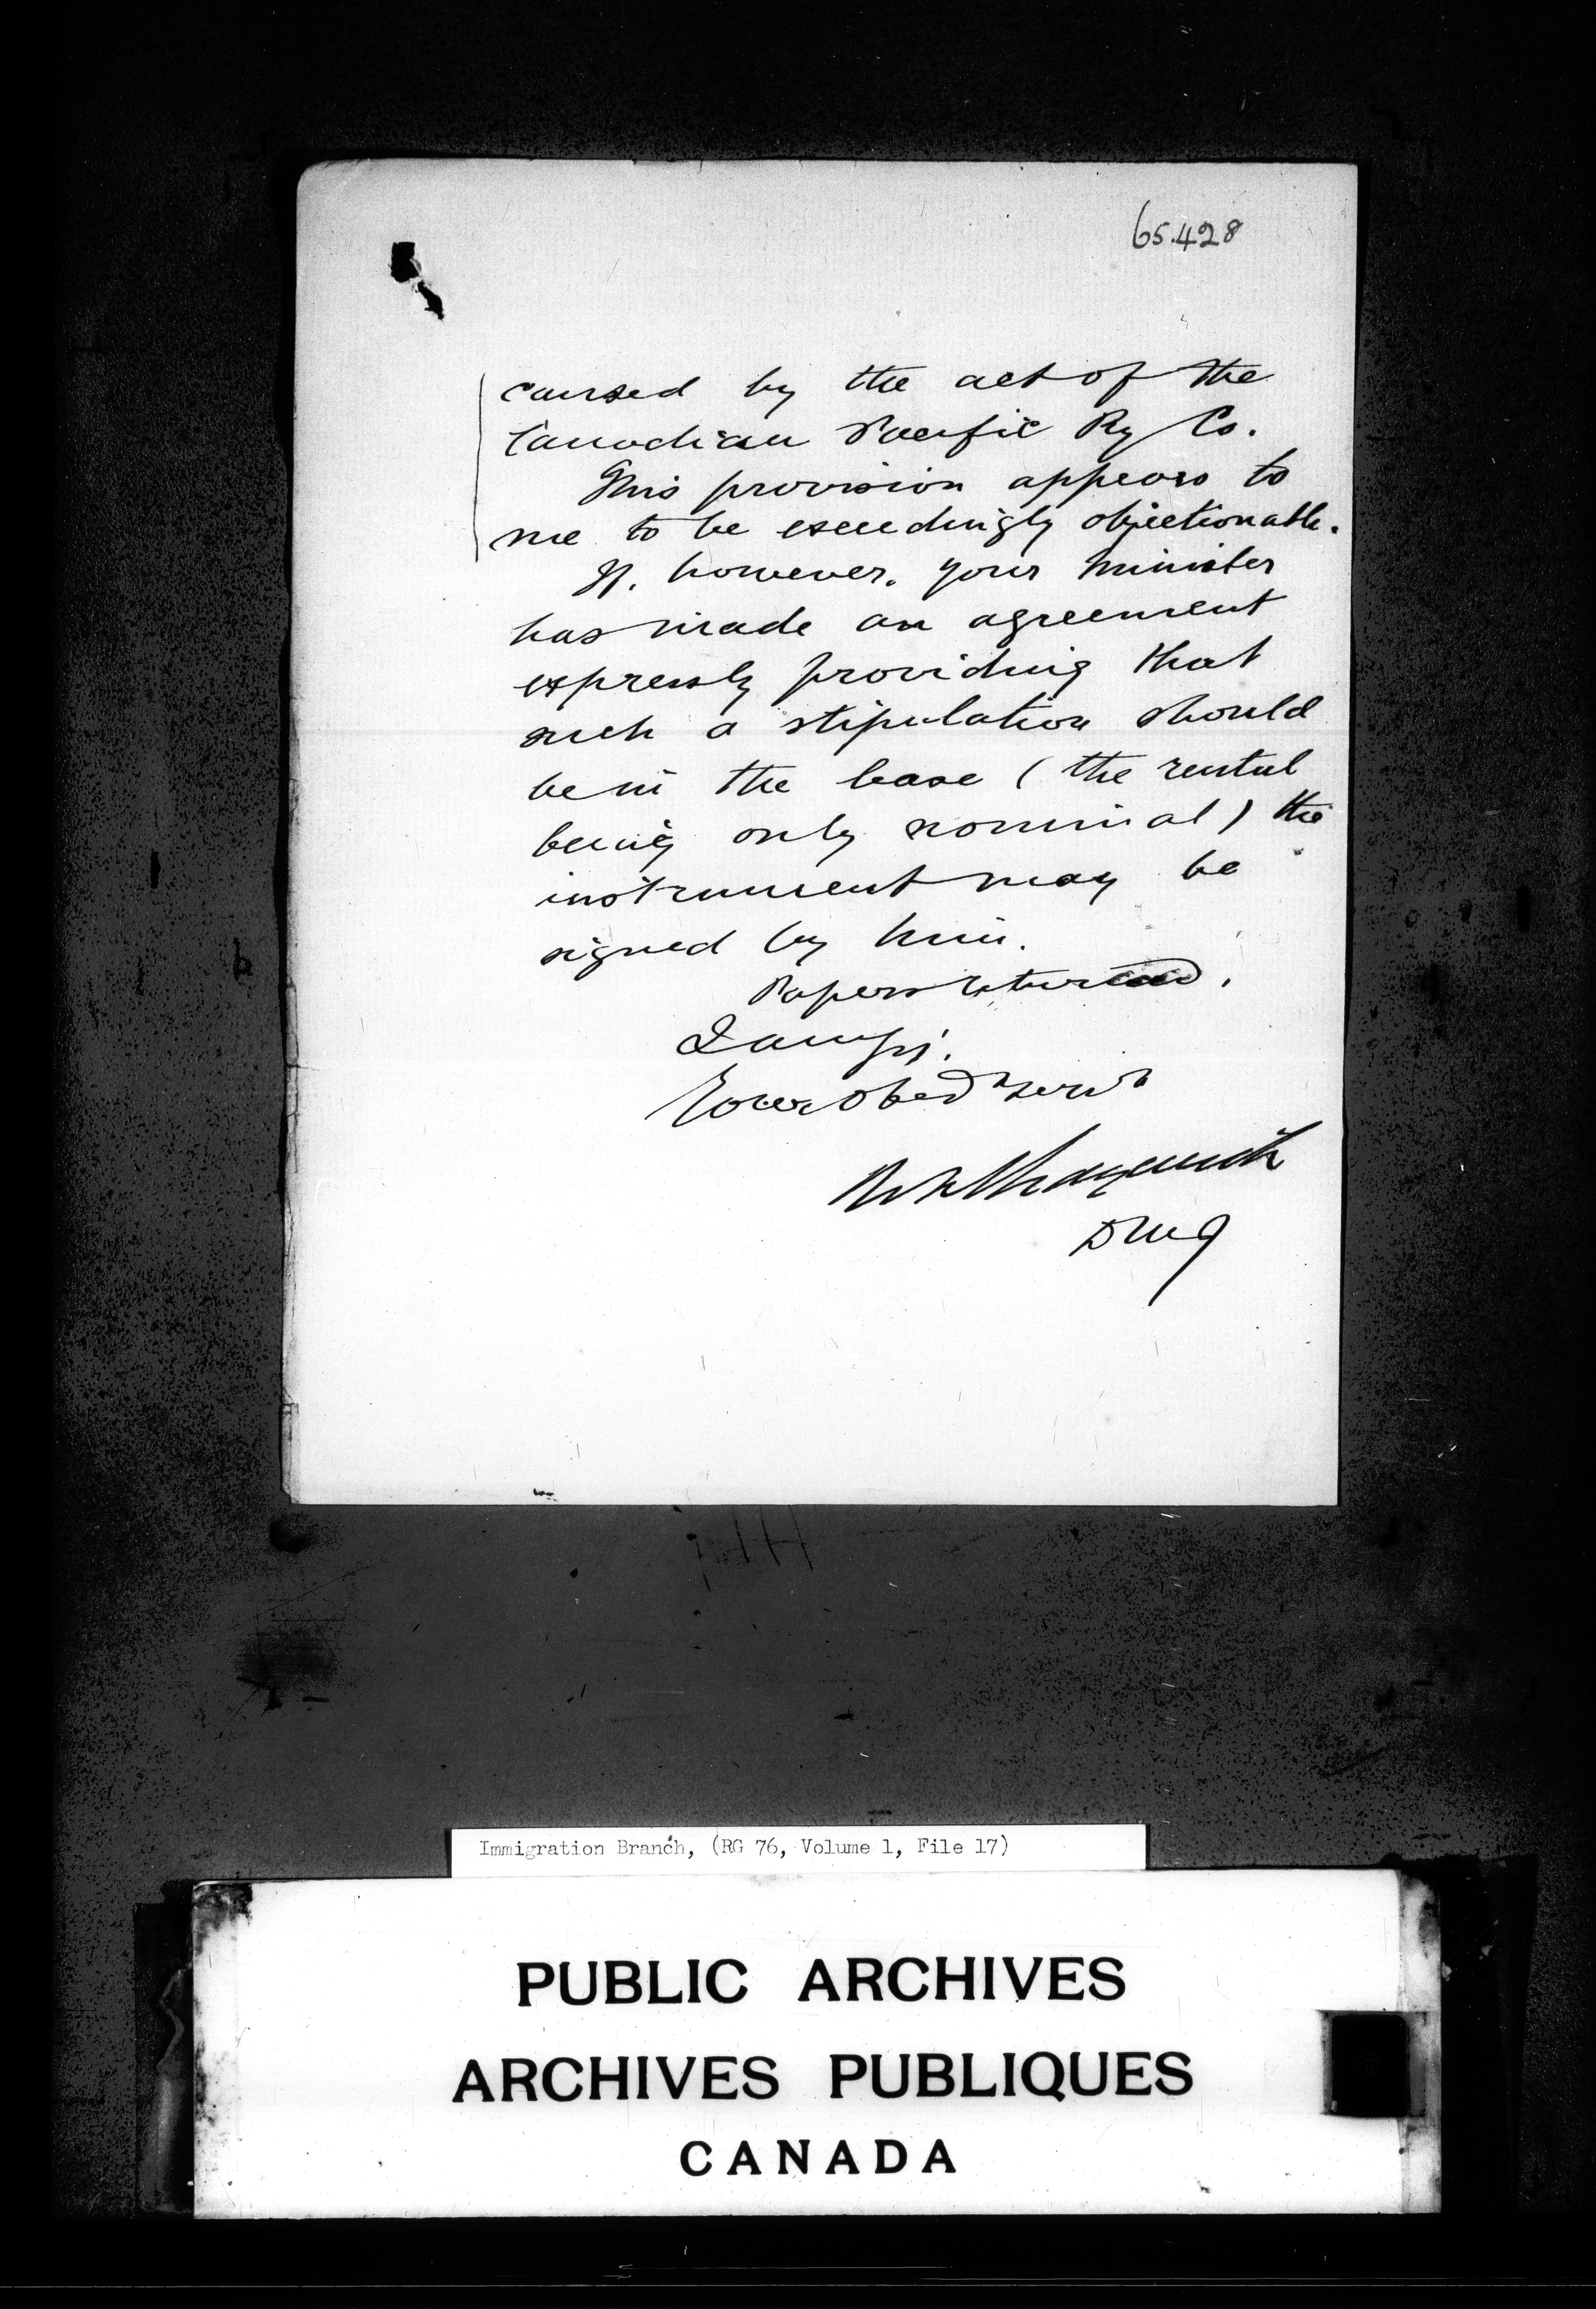 65.428
caused by the act of the
Canadian Pacific Ry Co.
This provision appears to
me to be exceedingly objectionable.
If, however, your Minister
has made an agreement
expressly providing that
such a stipulation should
be in the lease (the rental
being only nominal) the
instrument may be
signed by him.
Papers returned.
I am Sir,
Your obedt servt
DMJ
Immigration Branch, (RG 76, Volume 1, File 17)
PUBLIC ARCHIVES
ARCHIVES PUBLIQUES
CANADA